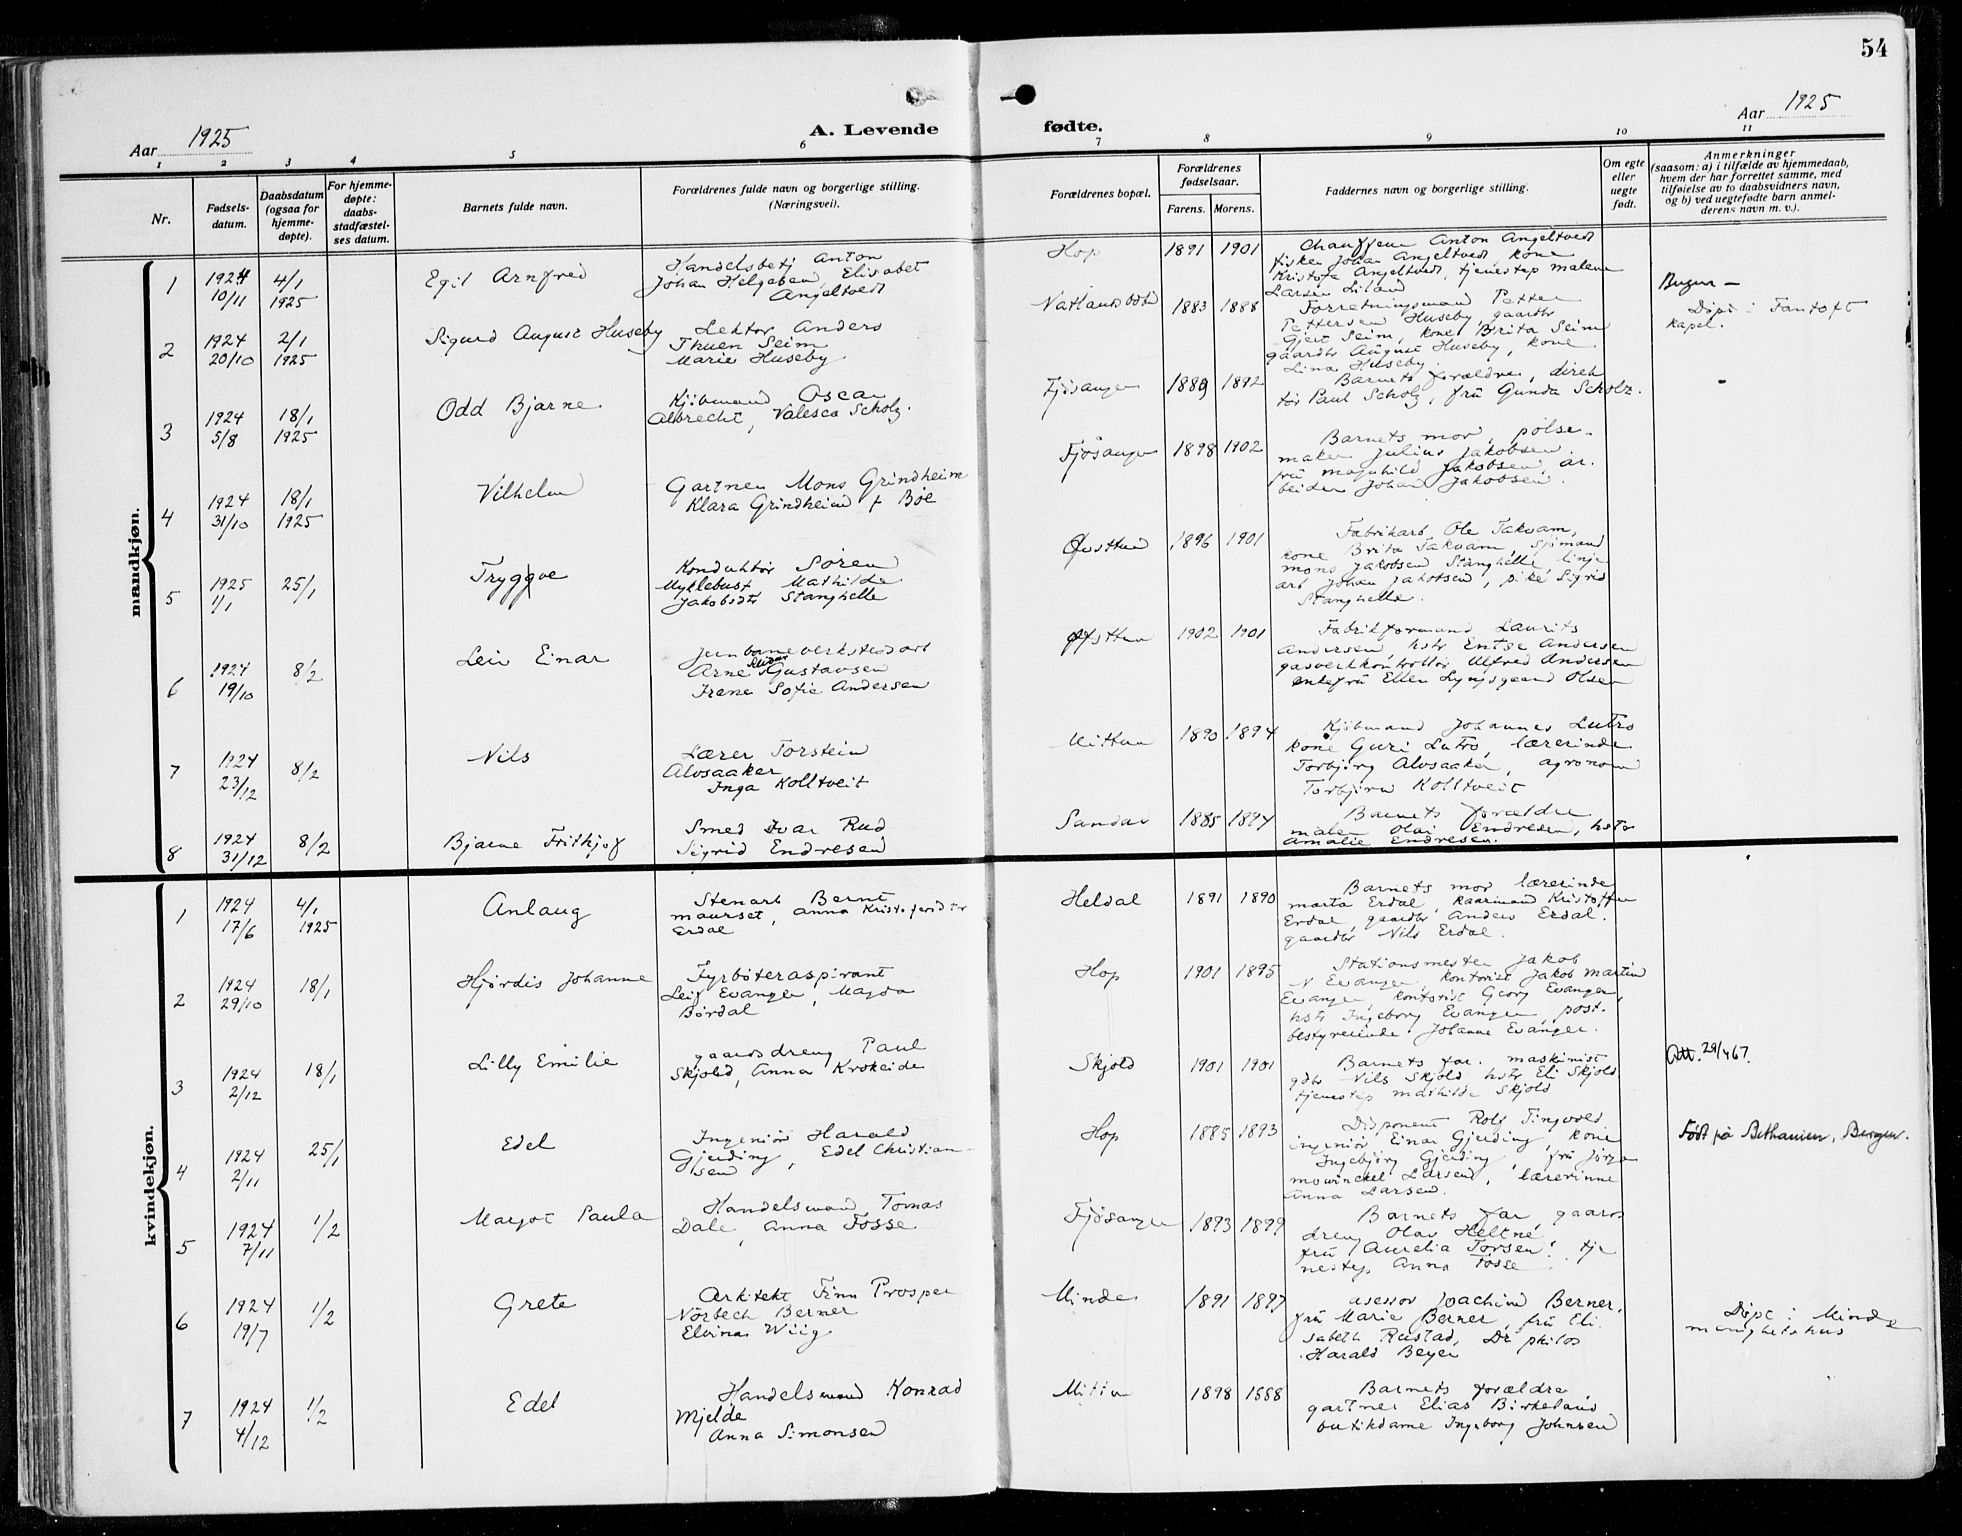 54
Aar 1925
A. Levende
fødte.
Aar 1925
1 2 3 4 5 6 7 8 9 10 11
Nr.
Fødsels-
datum.
Daabsdatum
(ogsaa for
hjemme-
døpte).
For hjemme-
døpte:
daabs-
stadfæstel-
ses datum.
Barnets fulde navn.
Forældrenes fulde navn og borgerlige stilling.
(Næringsvei).
Forældrenes bopæl.
Forældrenes
fødselsaar.
Farens. Morens.
Faddernes navn og borgerlige stilling.
Om egte
eller
uegte
født.
Anmerkninger
(saasom: a) i tilfælde av hjemmedaab,
hvem der har forrettet samme, med
tilføielse av to daabsvidners navn,
og b) ved uegtefødte barn anmel-
derens navn m. v.).
mandkjøn.
1
1924
10/11
4/1
1925
Egil Arnfred
Handelsbetj Anton
Johan Helgesen, Elisabet
Angeltvedt
Hop
1891 1901
Chauffeur Anton Angeltvedt
fisker Johan Angeltvedt, kone
Kristofa Angeltvedt, tjenestep malene
Larsen Liland
2
1924
20/10
2/1
1925
Sigurd August Huseby
Lektor Anders
Thuen Seim
Marie Huseby
1883 1888
Forretningsmand Petter
Pettersen Huseby, gaardbr
Gjert Seim, kone Brita Seim
gaardbr August Huseby, kone
Lina Huseby
Bergen —
Døpt i Fantoft
kapel.
3
1924
5/8
18/1
1925
Odd Bjarne
Kjøbmand Oscar
Albrecht, Valesca Scholz.
Fjøsanger
1889 1892
Barnets forældre, direk
tør Paul Scholz, frü Gunda Scholz.
4
1924
31/10
18/1
1925
Vilhelm
Gartner Mons Grindheim
Klara Grindheim f Bøe
Fjøsanger
1898 1902
Barnets mor, pølse-
maker Julius Jakobsen
frü magnhild Jakobsen, ar-
beider Johan Jakobsen.
5
1925
1/1
25/1
Tryggve
Konduktør Søren
Myklebust Mathilde
Jakobsdtr Stanghelle
Øvsttun
1896 1901
Fabrikarb Ole Takvam,
kone Brita Takvam, sjömand
mons Jakobsen Stanghelle, linje
arb Johan Jakobsen, pike Sigrid
Stanghelle.
6
1924
19/10
8/2
Leiv Einar
Jernbaneverkstedsarb
Arne Gustavsen
Irene Sofie Andersen
Øvsttun
1902 1901
Fabrikformand Laurits
Andersen, hstr Entse Andersen
gasverkkontrollør Alfred Andersen
enkefrü Ellen Lyngsgaard Olsen
7
1924
23/12
8/2
Nils
Lærer Torstein
Alvsaaker
Inga Kolltveit
Mittun
1890 1894
Kjöbmand Johannes Lutro
kone Guri Lutro, lærerinde
Torbjörg Alvsaaker, agronom
Torbjörn Kolltveit
8
1924
31/12
8/2
Bjarne Frithjof
Smed Ivar Rud
Sigrid Endresen
Sandal
1885 1894
Barnets forældre
maler Olai Endresen, hstr
Amalie Endresen.
kvindekjøn.
1
1924
17/6
4/1
1925
Anlaug
Stenarb Bernt
maurset, Anna Kristofersdtr
Erdal
Heldal
1891 1890
Barnets mor lærerinde
marta Erdal, kaarmand Kristoffer
Erdal, gaardbr Anders Erdal.
gaardbr Nils Erdal.
2
1924
29/10
18/1
Hjørdis Johanne
Fyrbøteraspirant
Leif Evanger, Magda
Børdal
Hop
1901 1895
Stationsmester Jakob
N Evanger, kontorist Jakob martin
Evanger, kontorist Georg Evanger,
hstr Ingeborg Evanger post-
bestyrerinde Johanne Evanger.
3
1924
2/12
18/1
Lilly Emilie
gaardsdreng Paul
Skjold, Anna Krokeide
Skjold
1901 1901
Barnets far. maskinist
gdbr Nils Skjold hstr Eli Skjold
tjenestep mathilde Skjold
Att. 29/467.
4
1924
2/11
25/1
Edel
Ingeniör Harald
Gjerding, Edel Christian-
sen
Hop
1885 1893
Disponent Rolf Tingvold
ingeniör Einar Gjerding, kone
Ingebjörg Gjerding, frü Jörga
mowinckel Larsen, lærerinne
Anna Larsen.
Født på Bethanien, Bergen.
5
1924
7/11
1/2
Margot Paula
Handelsmand Tomas
Dale, Anna Fosse
Fjösanger
1893 1899
Barnets far, gaards
dreng Olav Heltne,
frü Aurelia Torsen, tje
nestep Anna Fosse.
6
1924
19/7
1/2
Grete
Arkitekt Finn Prosper
Nörbech Berner
Elvina Wiig
Minde
1891 1897
asessor Joachim Berner,
frü Marie Berner, frü Eli
sabeth Rustad, Dr philos
Harald Beyer
Døpt i Minde
menighetshus
7
1924
4/12
1/2
Edel
Handelsmand Konrad
Mjelde
Anna Simonsen
Mittun
1898 1888
Barnets forældre
gartner Elias Birkeland
butikdame Ingeborg Johnsen